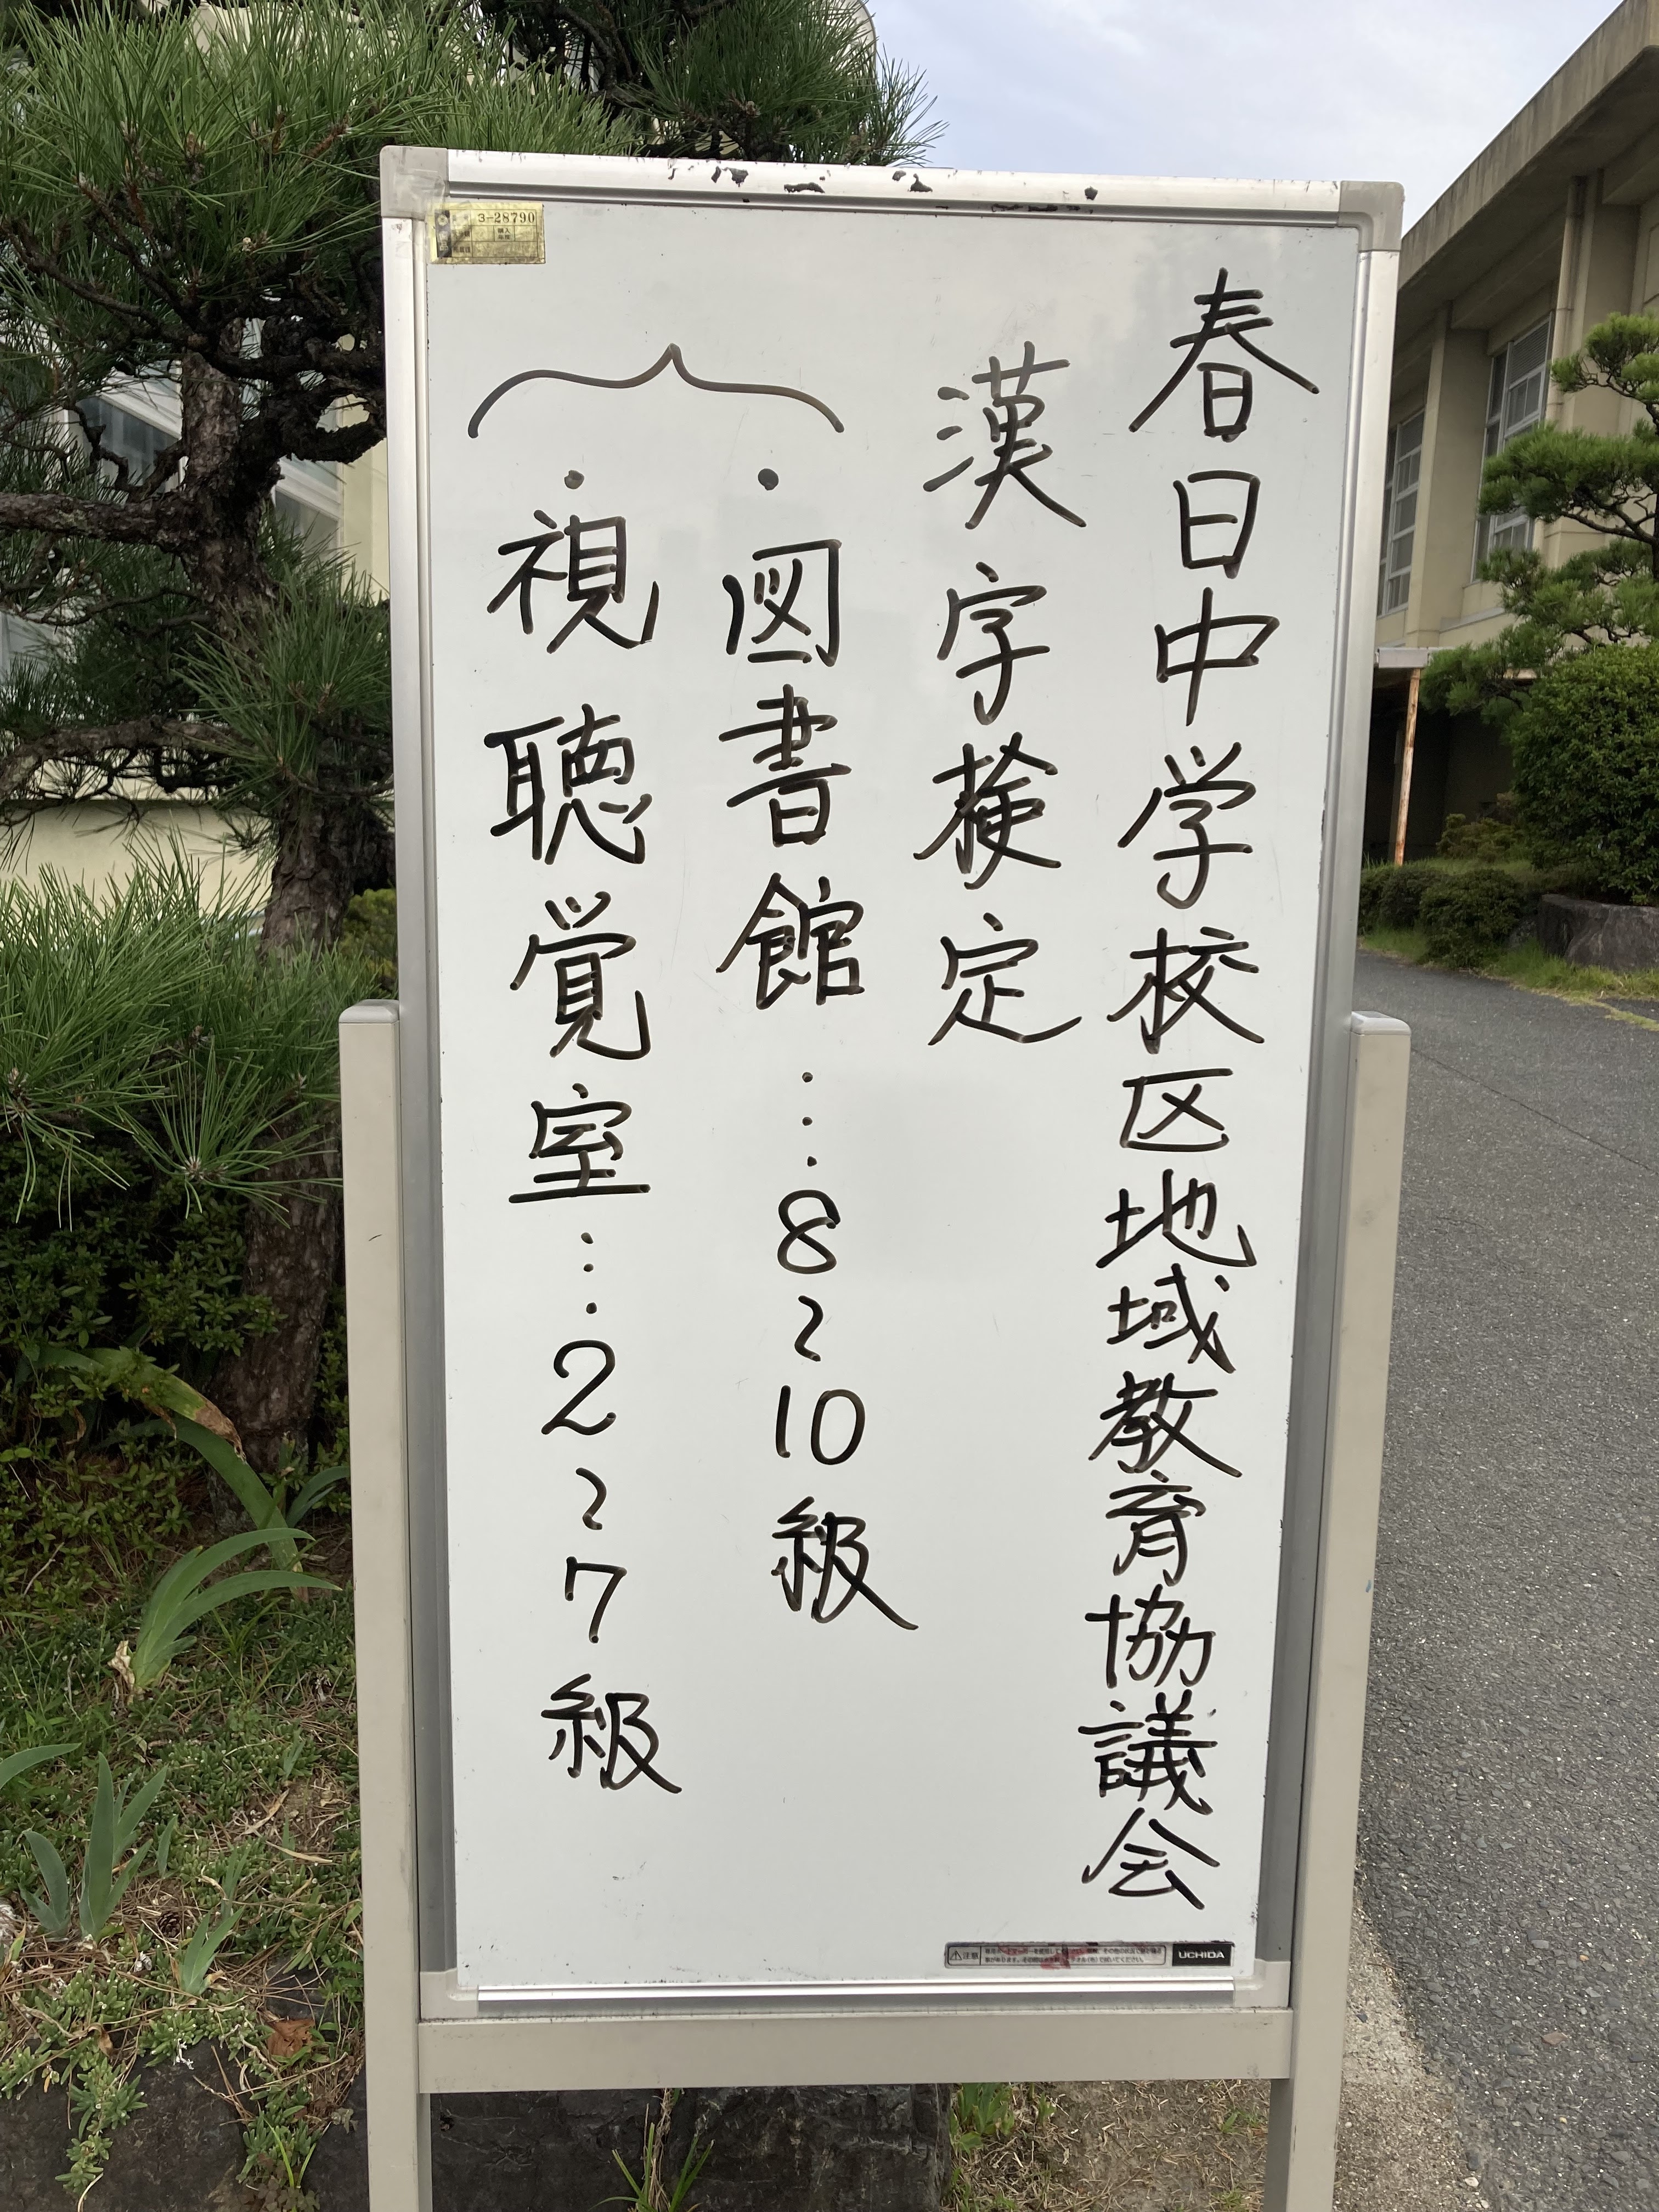 春日中学校区地域教育協議会
漢字検定
・図書館…8~10級
・視聴覚室…2~7級
3-28790
注意
UCHIDA